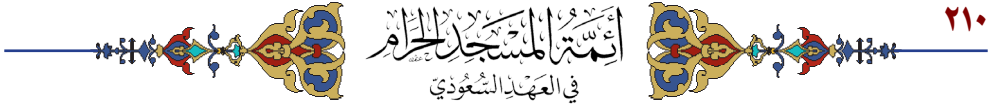 ٢١٠
أَئِمَّةُ المَسْجِدِ الحَرَامِ
في العَهْدِ السُّعُودِيّ